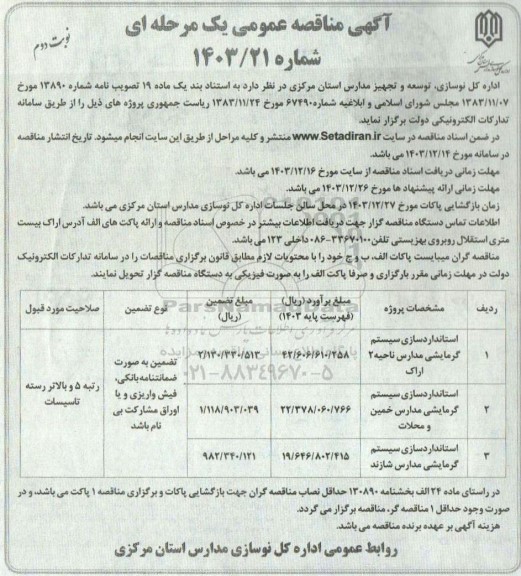 آگهی مناقصه عمومی یک مرحله ای
شماره ۱۴۰۳/۲۱
نوبت دوم
اداره کل نوسازی، توسعه و تجهیز مدارس استان مرکزی در نظر دارد به استناد بند یک ماده ۱۹ تصویب نامه شماره ۱۳۸۹۰ مورخ
۱۳۸۳/۱۱/۰۷ مجلس شورای اسلامی و ابلاغیه شماره ۶۷۴۹۰ مورخ ۱۳۸۳/۱۱/۲۴ ریاست جمهوری پروژه های ذیل را از طریق سامانه
تدارکات الکترونیکی دولت برگزار نماید.
در ضمن اسناد مناقصه در سایت www.Setadiran.ir منتشر و کلیه مراحل از طریق این سایت انجام میشود. تاریخ انتشار مناقصه
در سامانه مورخ ۱۴۰۳/۱۲/۱۴ می باشد.
مهلت زمانی دریافت اسناد مناقصه از سایت مورخ ۱۴۰۳/۱۲/۱۶ می باشد.
مهلت زمانی ارائه پیشنهاد ها مورخ ۱۴۰۳/۱۲/۲۶ می باشد.
زمان بازگشایی پاکات مورخ ۱۴۰۳/۱۲/۲۷ در محل سالن جلسات اداره کل نوسازی مدارس استان مرکزی می باشد.
اطلاعات تماس دستگاه مناقصه گزار جهت دریافت اطلاعات بیشتر در خصوص اسناد مناقصه و ارائه پاکت های الف آدرس اراک بیست
متری استقلال روبروی بهزیستی تلفن ۳۳۶۷۰۱۰۰-۰۸۶ داخلی ۱۲۳ می باشد.
مناقصه گران میبایست پاکات الف، ب و ج خود را با محتویات لازم مطابق قانون برگزاری مناقصات را در سامانه تدارکات الکترونیک
دولت در مهلت زمانی مقرر بارگذاری و صرفا پاکت الف را به صورت فیزیکی به دستگاه مناقصه گزار تحویل نمایند.
ردیف | مشخصات پروژه | مبلغ برآورد (ریال) (فهرست پایه ۱۴۰۳) | مبلغ تضمین (ریال) | نوع تضمین | صلاحیت مورد قبول
۱ | استانداردسازی سیستم گرمایشی مدارس ناحیه ۲ اراک | ۴۲/۶۰۶/۶۱۰/۲۵۸ | ۲/۱۳۰/۳۳۰/۵۱۳ | تضمین به صورت ضمانتنامه بانکی، فیش واریزی و یا اوراق مشارکت بی نام باشد | رتبه ۵ و بالاتر رسته تاسیسات
۲ | استانداردسازی سیستم گرمایشی مدارس خمین و محلات | ۲۲/۳۷۸/۰۶۰/۷۶۶ | ۱/۱۱۸/۹۰۳/۰۳۹
۳ | استانداردسازی سیستم گرمایشی مدارس شازند | ۱۹/۶۴۶/۸۰۲/۴۱۵ | ۹۸۲/۳۴۰/۱۲۱
در راستای ماده ۲۴ الف بخشنامه ۱۳۰۸۹۰ حداقل نصاب مناقصه گران جهت بازگشایی پاکات و برگزاری مناقصه ۱ پاکت می باشد، و در
صورت وجود حداقل ۱ مناقصه گر، مناقصه برگزار می گردد.
هزینه آگهی بر عهده برنده مناقصه می باشد.
روابط عمومی اداره کل نوسازی مدارس استان مرکزی
ParsNamadData
۰۲۱-۸۸۳۴۹۶۷۰-۵